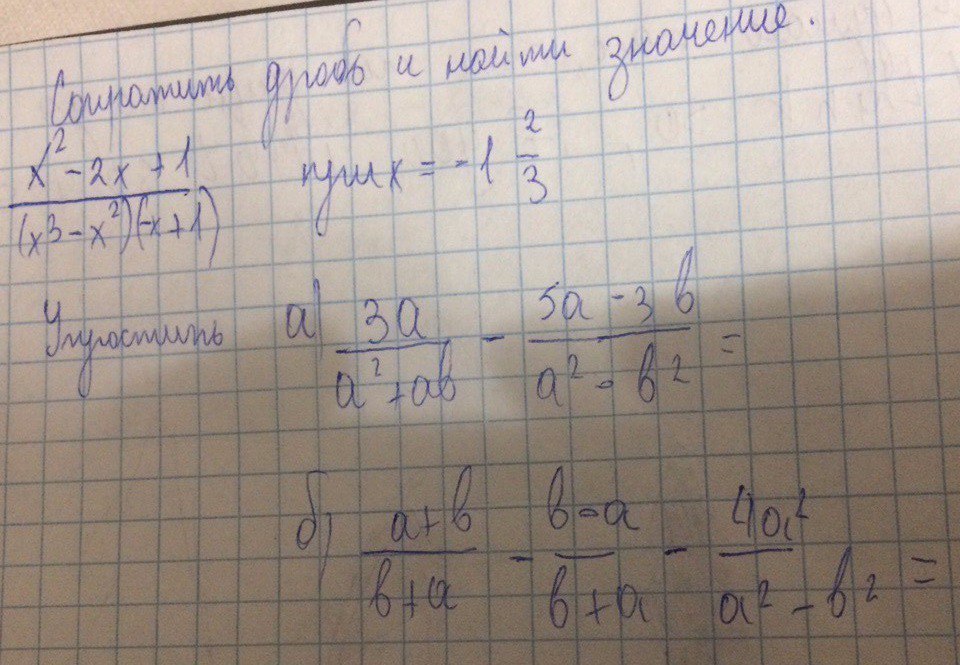 Сократить дробь и найти значение.
x² - 2x + 1 / (x3 - x²)(-x + 1) при x = -1 2/3
Упростить а) 3a / a² + ab - 5a - 3b / a² - b² =
б) a + b / b + a - b - a / b + a - 4a² / a² - b² =